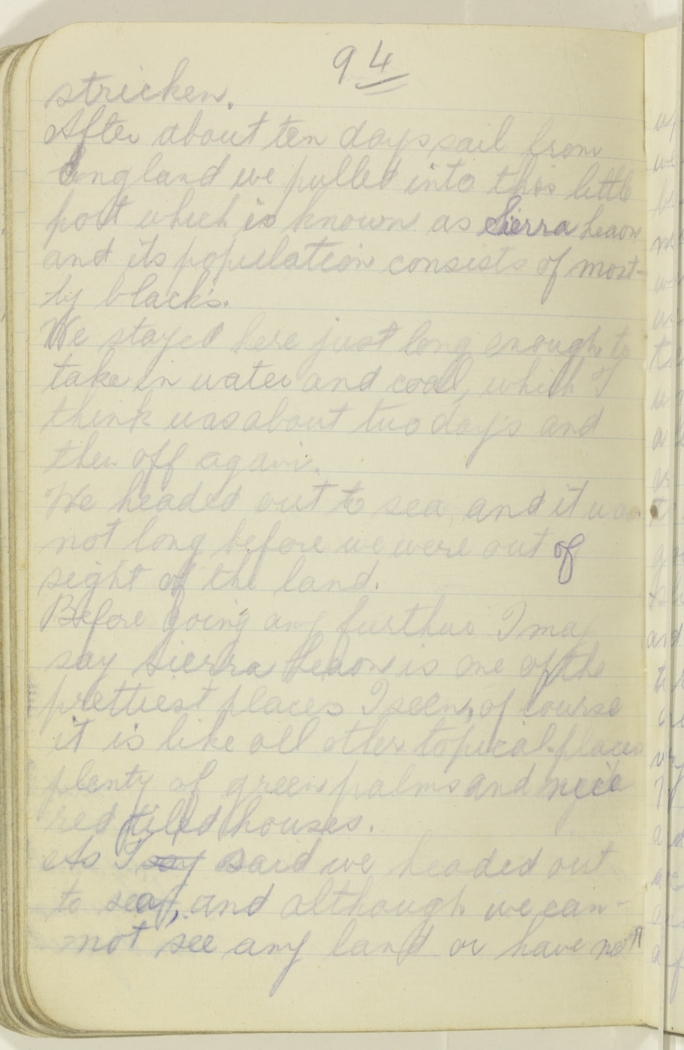 94
stricken.
After about ten days sail from
England we pulled into this little
port which is known as Sierra Leaon
and its population consists of most-
ly blacks.
We stayed here just long enough to
take in water and coal, which I
think was about two days and
then off again.
We headed out to sea, and it was
not long before we were out of
sight of the land.
Before going any further I may
say Sierra Leaon is one of the
prettiest places I seen, of course
it is like all other topical places
plenty of green palms and nice
red tiled houses.
As I say said we headed out
to sea, and although we can-
not see any land or have not